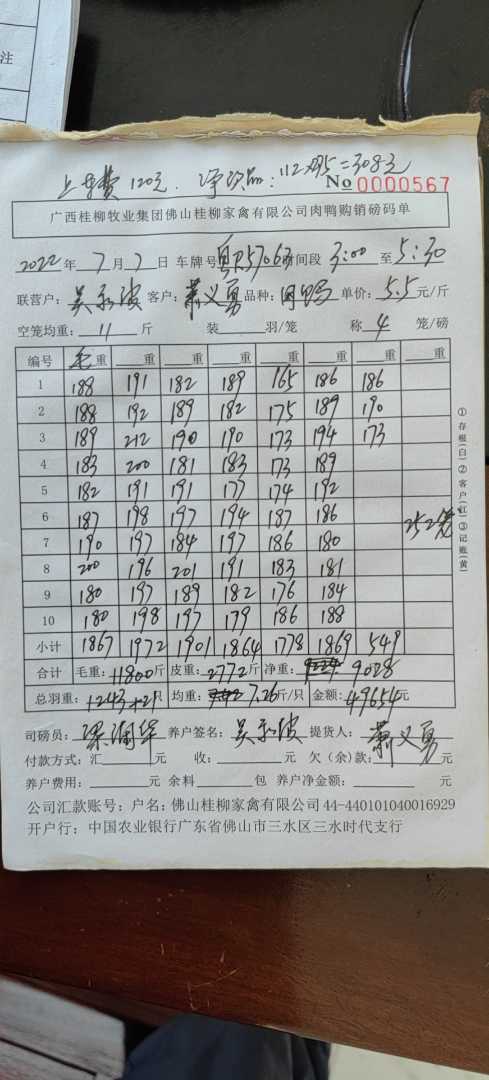 注
上车费 120元. 净次品: 112×2.75=308元
No 0000567
广西桂柳牧业集团佛山桂柳家禽有限公司肉鸭购销磅码单
2022年7月7日 车牌号 粤R57063 时间段 3:00 至 5:30
联营户: 吴 波 客户: 萧义勇 品种: 单价: 5.5元/斤
空笼均重: 11 斤 装 羽/笼 称 4 笼/磅
编号 毛重 重 重 重 重 重 重 重
1 188 191 182 189 165 186 186
2 188 192 189 182 175 189 190
3 189 212 190 190 173 194 173
4 183 200 181 183 173 189
5 182 191 191 177 174 192
6 187 198 197 194 187 186 252笼
7 190 197 184 197 186 180
8 200 196 201 191 183 181
9 180 197 189 182 176 184
10 180 198 197 179 186 188
小计 1867 1972 1901 1864 1778 1869 549
合计 毛重: 11800斤 皮重: 2772斤 净重: 9028
总羽重: 1243+21只 均重: 7.26斤/只 金额: 49654元
司磅员: 梁润华 养户签名: 吴 波 提货人: 萧义勇
付款方式: 汇 元 收: 元 欠(余)款: 元
养户费用: 元 余料 包 养户净金额: 元
公司汇款账号: 户名: 佛山桂柳家禽有限公司 44-440101040016929
开户行: 中国农业银行广东省佛山市三水区三水时代支行
①存根(白)②客户(红)③记账(黄)